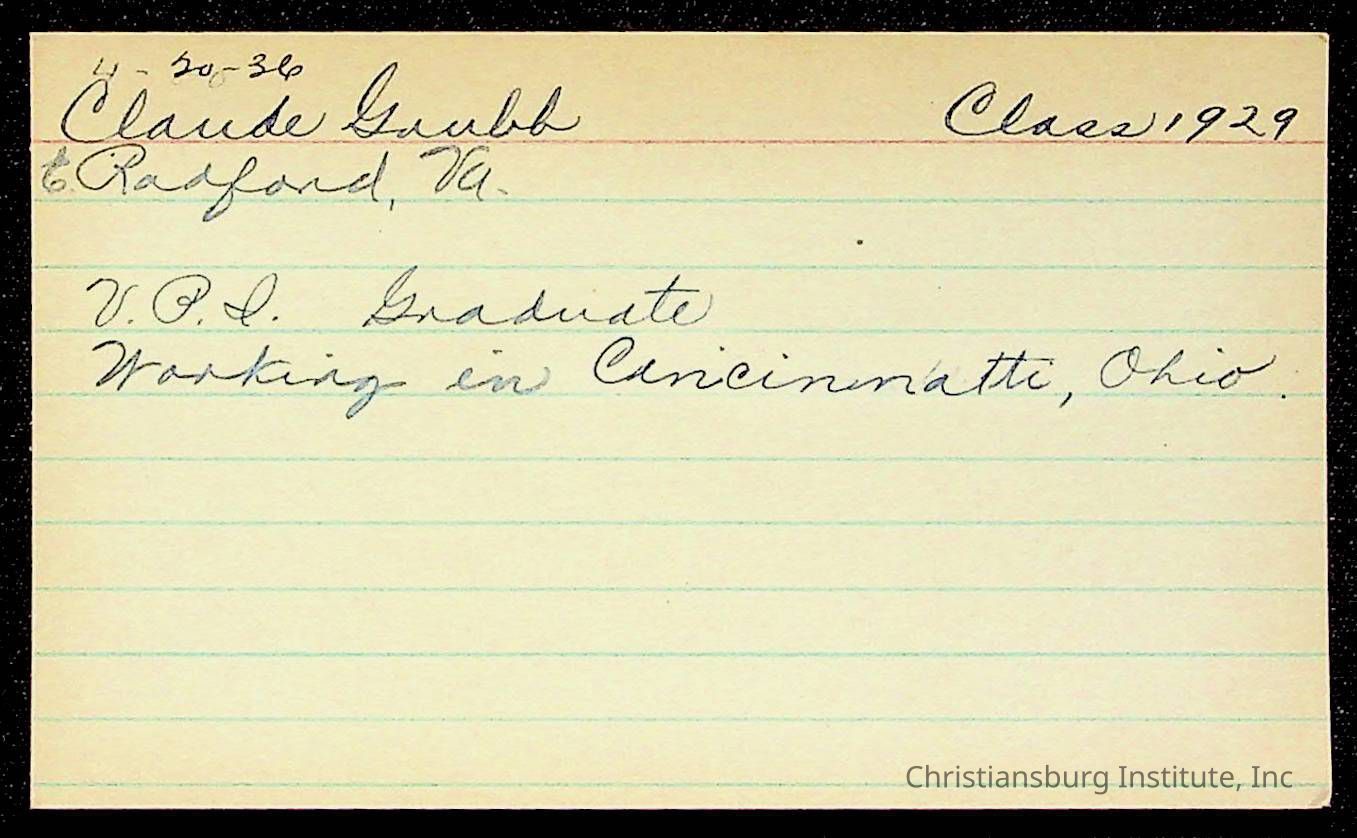 4-20-36
Claude Grubb Class 1929
E. Radford, Va.
V.P.I. Graduate
Working in Cincinnatti, Ohio.
Christiansburg Institute, Inc